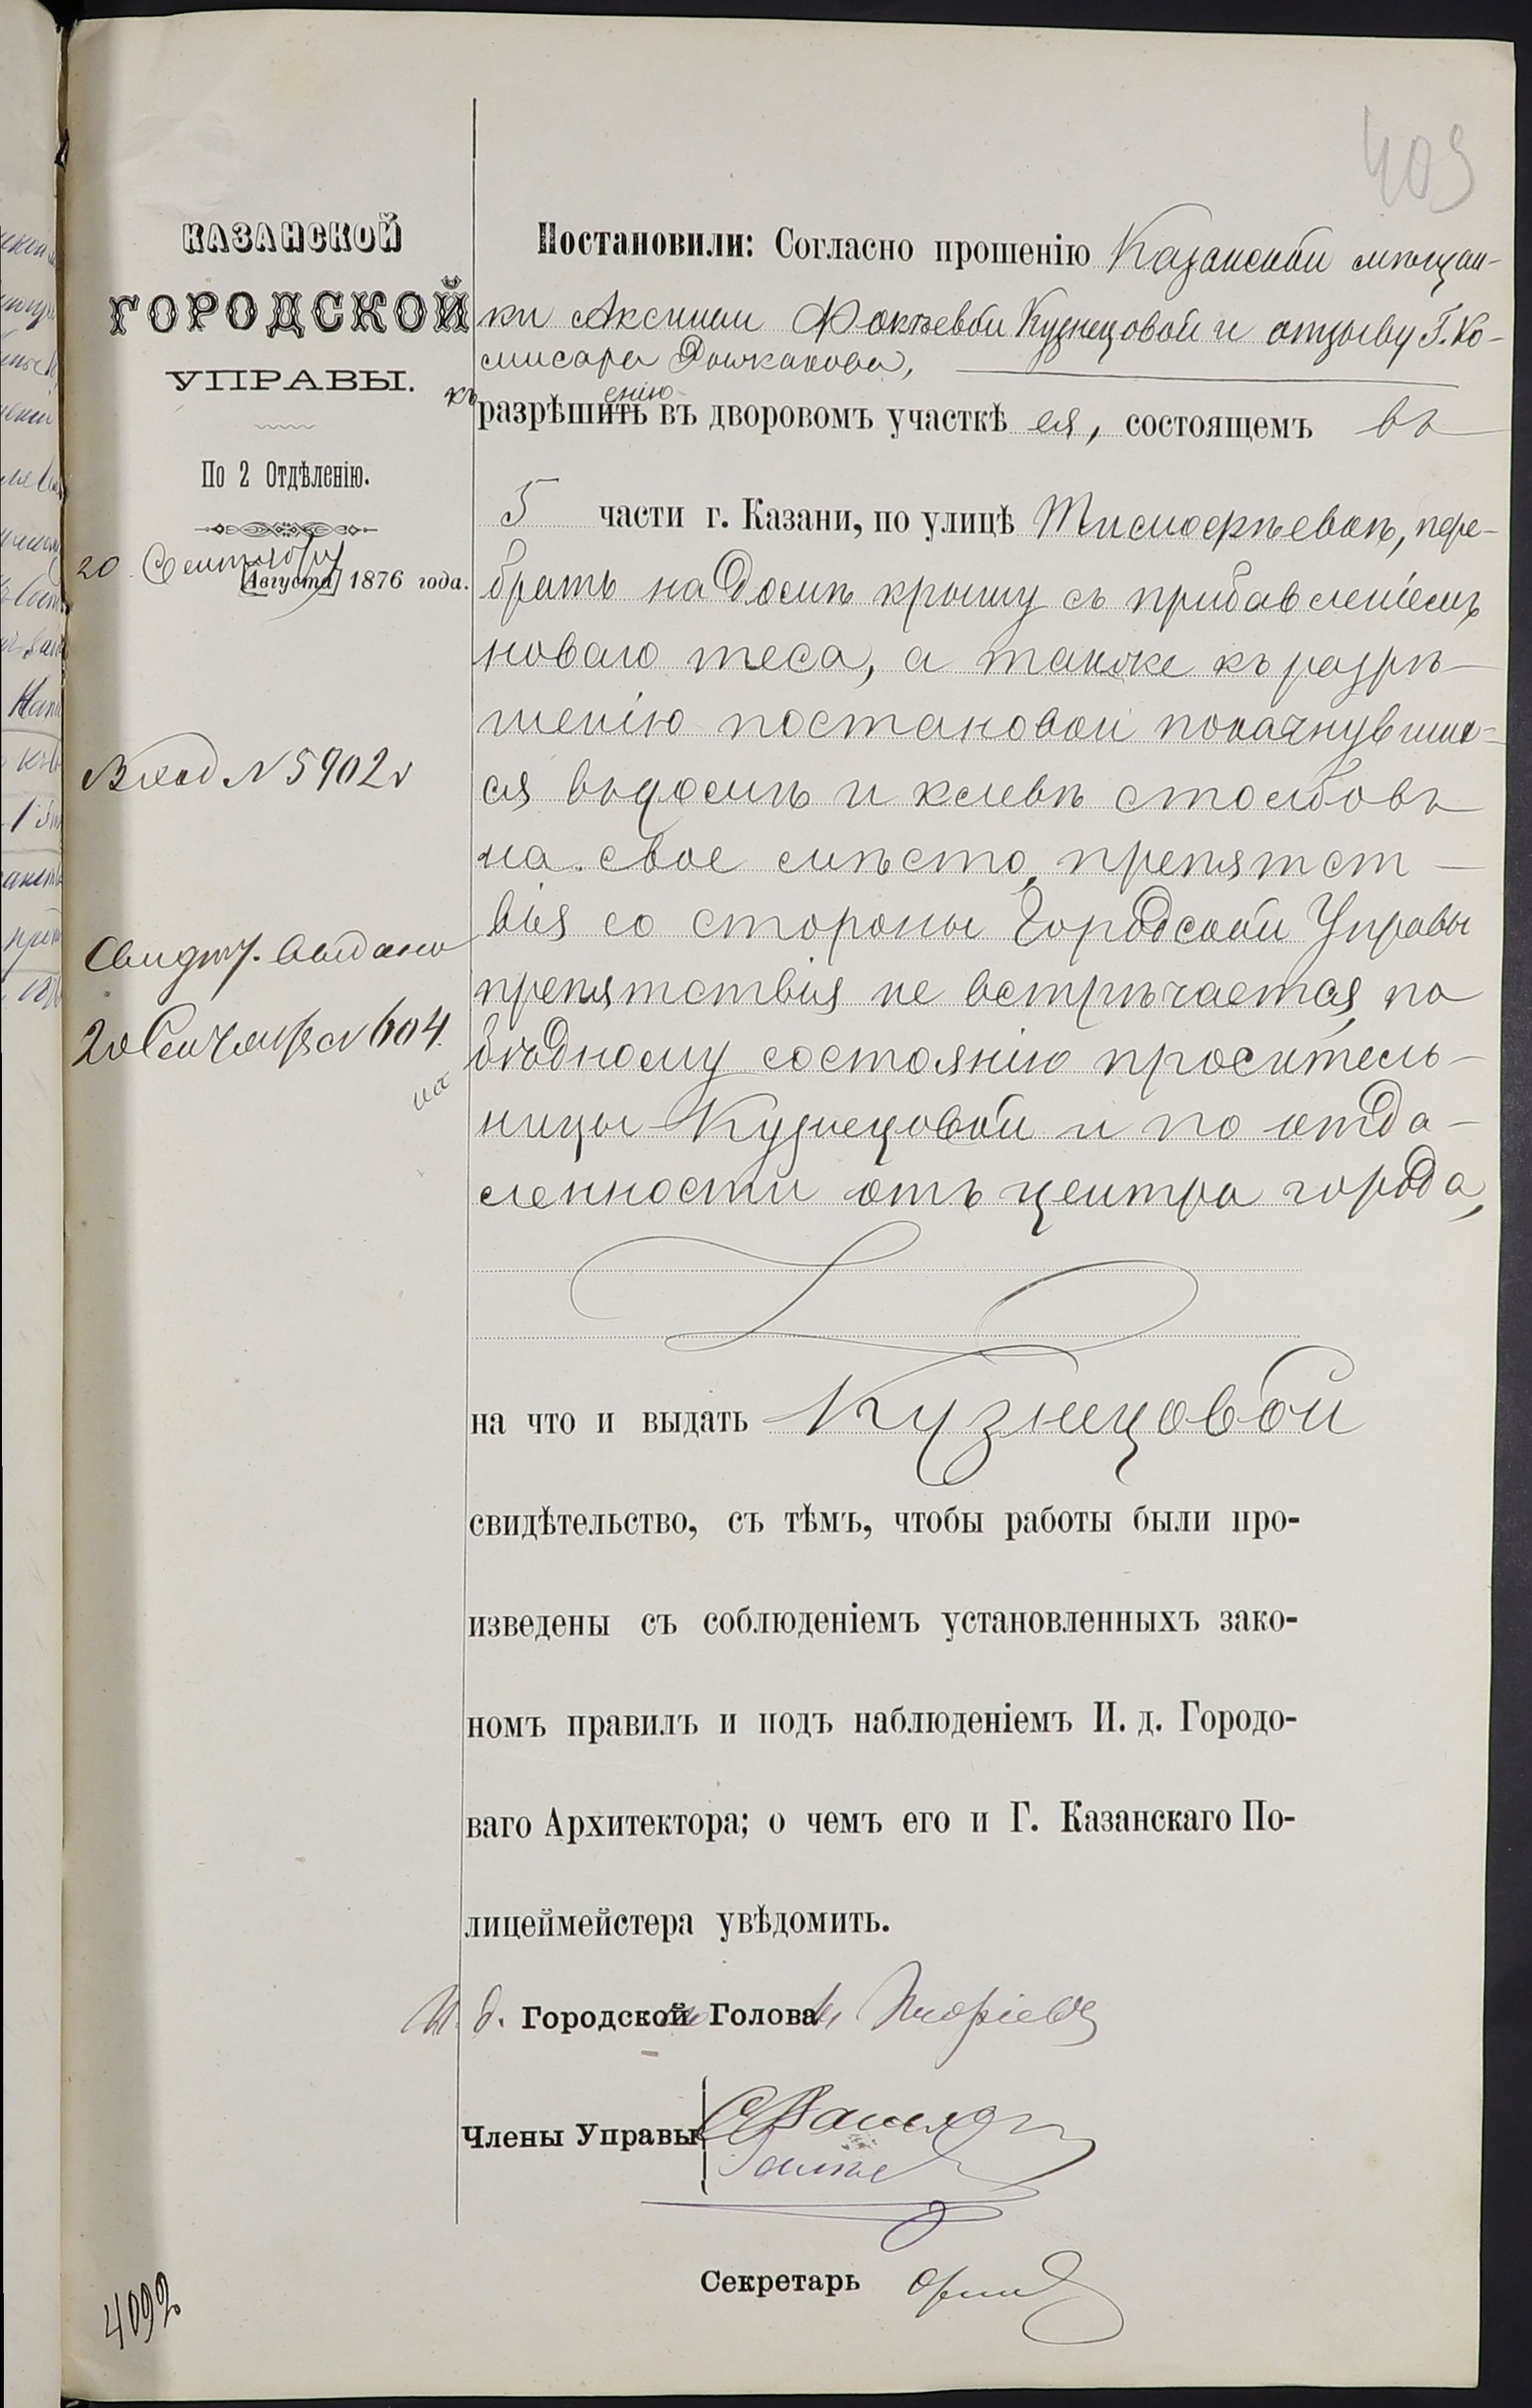 409
КАЗАНСКОЙ
ГОРОДСКОЙ
УПРАВЫ.
По 2 Отдѣленію.
20 Сентября
[Августа] 1876 года.
Вход N 5902
Свидѣт. выдано
20 Сентября N 604
на
Постановили: Согласно прошенію Казанской мѣщан-
ки Аксиньи Фокѣевой Кузнецовой и отзыву Г. Ко-
мисара
къ разрѣшенію въ дворовомъ участкѣ ея, состоящемъ въ
5 части г. Казани, по улицѣ Тимофѣевск, пере-
брать на домѣ крышу съ прибавленіемъ
новаго теса, а также къ разрѣ-
шенію постановки покачнувших-
ся въ домѣ и хлевѣ столбовъ
на свое мѣсто, препятст-
вія со стороны Городской Управы
препятствія не встрѣчается, по
бѣдному состоянію проситель-
ницы Кузнецовой и по отда-
ленности отъ центра города,
на что и выдать Кузнецовой
свидѣтельство, съ тѣмъ, чтобы работы были про-
изведены съ соблюденіемъ установленныхъ зако-
номъ правилъ и подъ наблюденіемъ И. д. Городо-
ваго Архитектора; о чемъ его и Г. Казанскаго По-
лицеймейстера увѣдомить.
И. д. Городской Голова
Члены Управы
Секретарь
4092